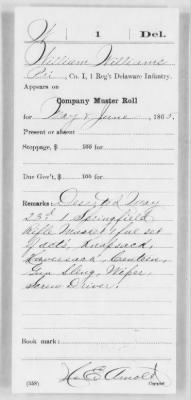 W 1 Del.
William Williams
Pri, Co. I, 1 Reg't Delaware Infantry.
Appears on
Company Muster Roll
for May & June, 1863.
Present or absent
Stoppage, $ 100 for
Due Gov't, $ 100 for
Remarks: Deserted May
23d 1 Springfield
Rifle Musket & full set
Knapsack,
Haversack, Canteen,
Gun Sling, Wiper,
Screw Driver.
Book mark:
E Arnold
(358) Copyist.